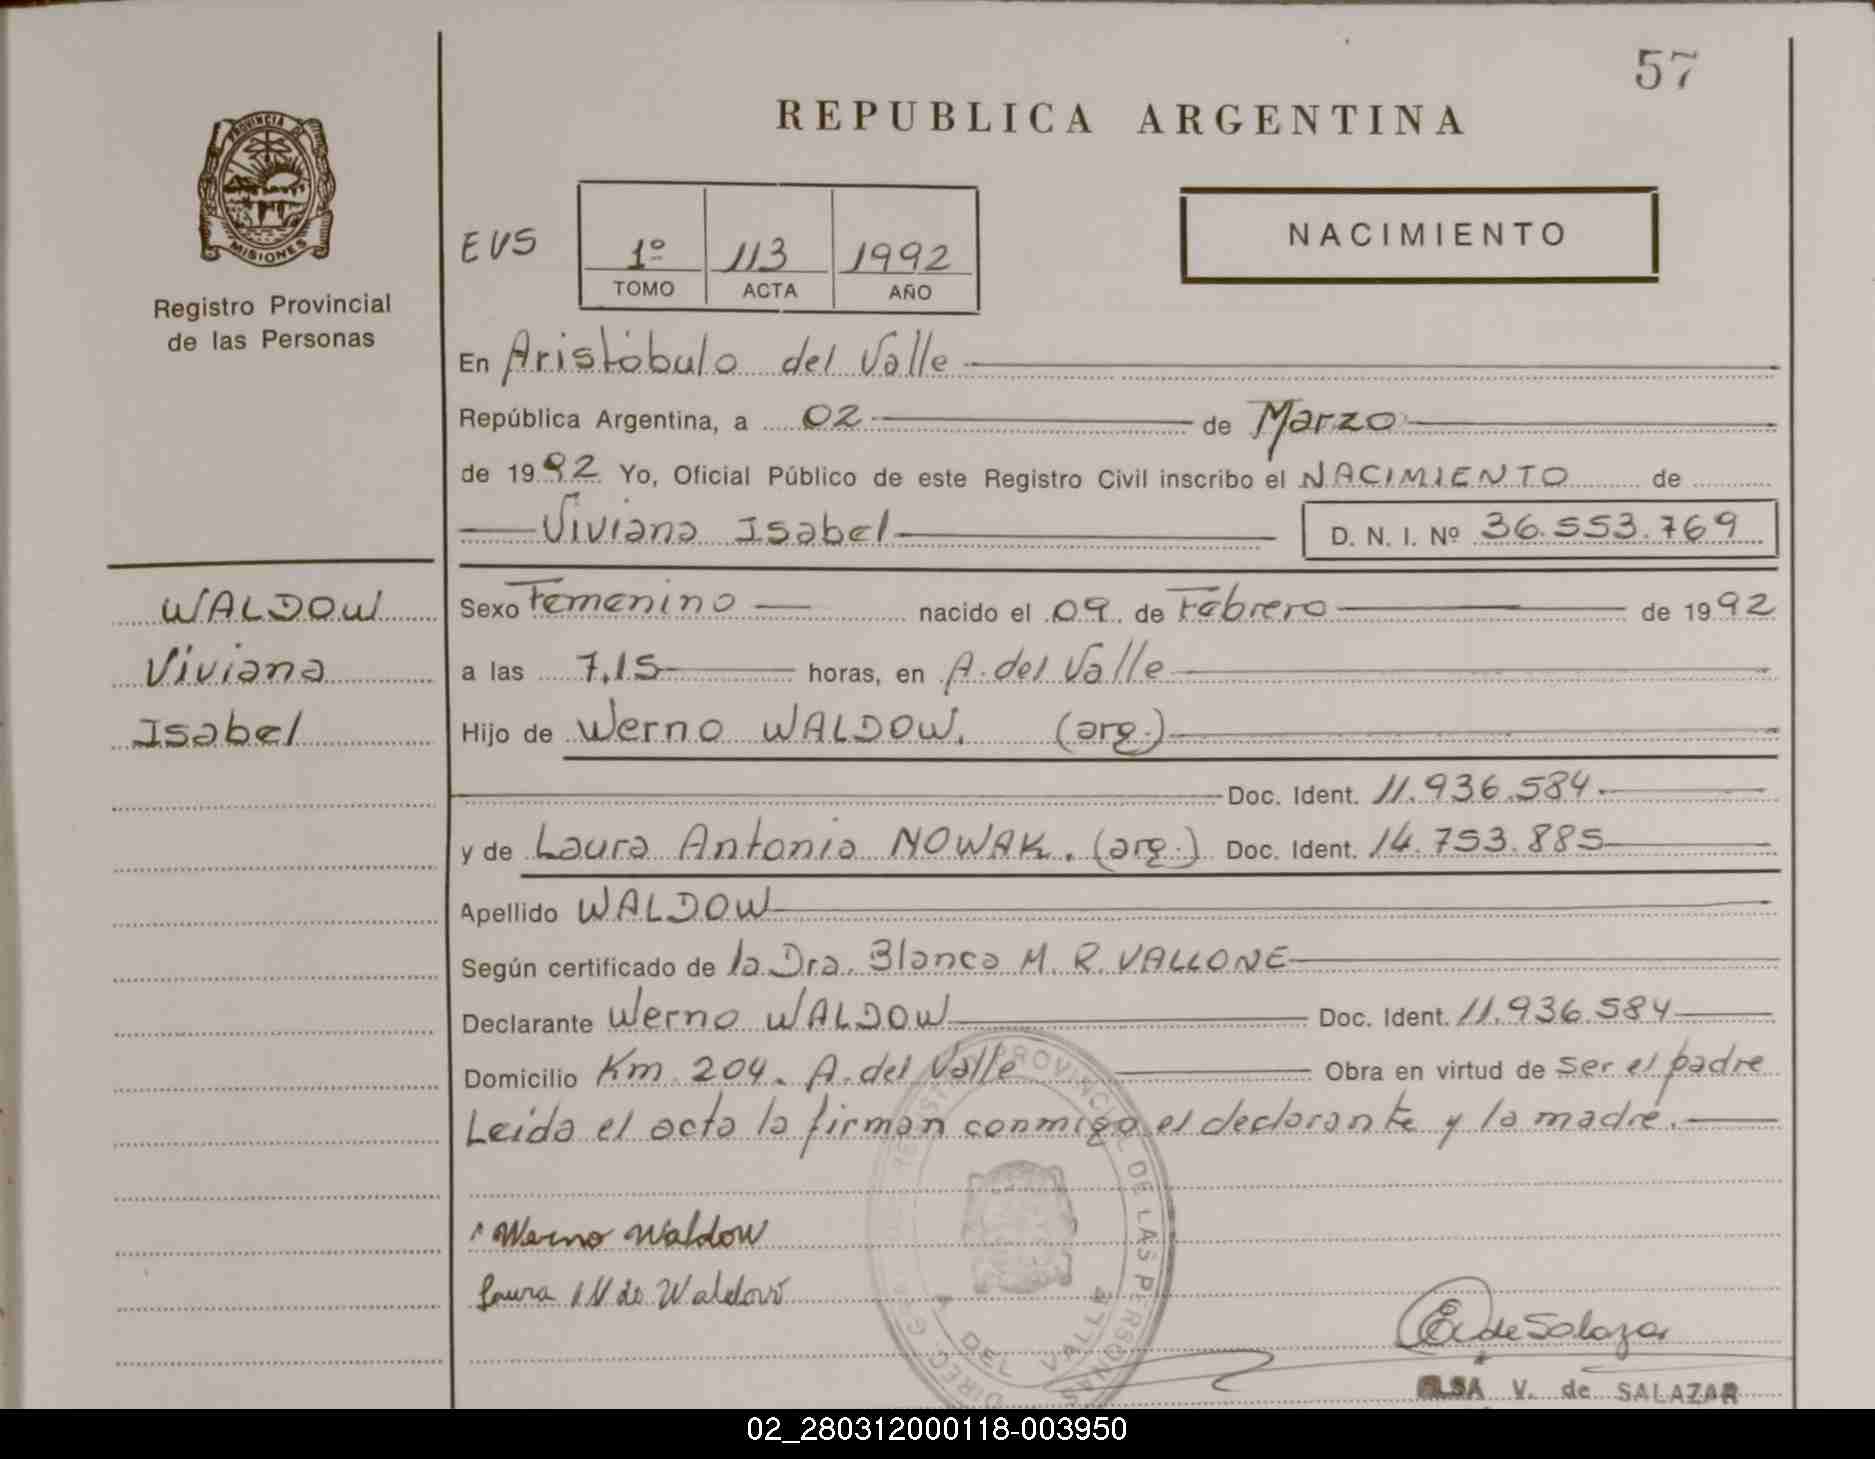 57
REPUBLICA ARGENTINA
PROVINCIA DE
MISIONES
Registro Provincial
de las Personas
EVS
1º 113 1992
TOMO ACTA AÑO
NACIMIENTO
En Aristóbulo del Valle
República Argentina, a 02 de Marzo
de 1992 Yo, Oficial Público de este Registro Civil inscribo el NACIMIENTO de
Viviana Isabel D. N. I. Nº 36.553.769
WALDOW
Viviana
Isabel
Sexo Femenino nacido el 09 de Febrero de 1992
a las 7,15 horas, en A. del Valle
Hijo de Werno WALDOW. (arg.)
Doc. Ident. 11.936.584.
y de Laura Antonia NOWAK. (arg.) Doc. Ident. 14.753.885
Apellido WALDOW
Según certificado de la Dra. Blanca M. R. VALLONE
Declarante Werno WALDOW Doc. Ident. 11.936.584
Domicilio Km 204. A. del Valle Obra en virtud de ser el padre
Leída el acta la firman conmigo el declarante y la madre.
Werno Waldow
Laura N de Waldow
PROVINCIAL DE LAS PERSONAS
A. DEL VALLE
DIREC. G
E. de Salazar
ELSA V. de SALAZAR
02_280312000118-003950